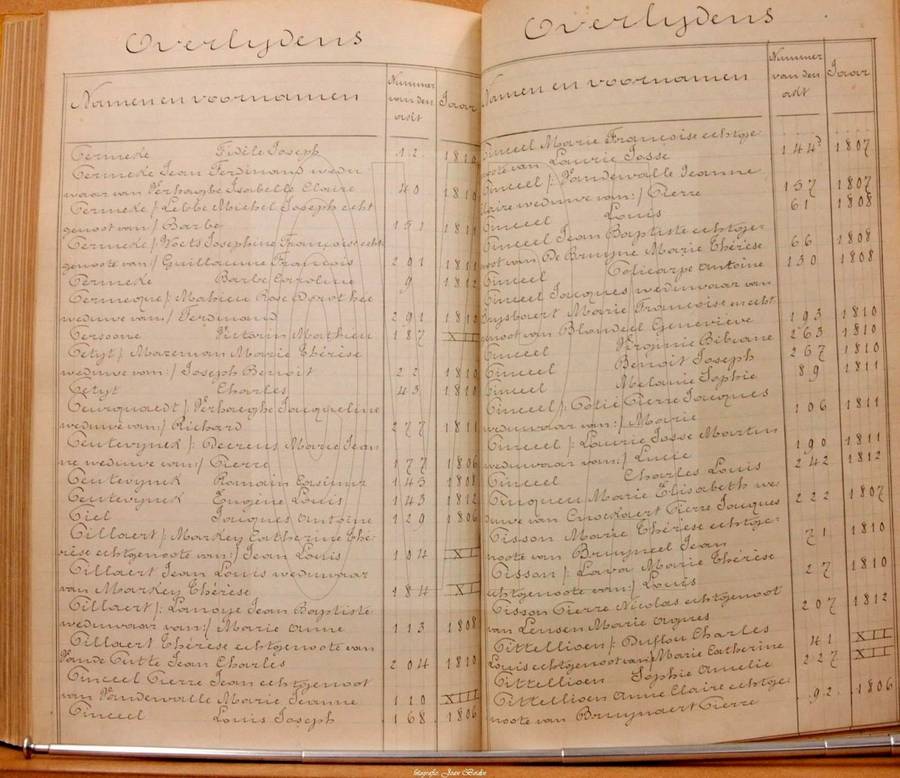 Overlydens
Namen en voornamen
Nummer van den akt
Jaar
Termeke Fidèle Joseph 12 1810
Termeke Jean Ferdinand wedu
waar van Verhaeghe Isabelle Claire 40 1810
Termeke /: Lebbe Michel Joseph echt
genoot van :/ Barbe 151
Termeke /: Noets Josephine Françoise echt
genoote van :/ Guillaume François 201 1811
Termeke Barbe Caroline 9 1812
Termeque /: Mahieu Rose Dorothée
weduwe van :/ Ferdinand 291
Tersoone Victorin Mathieu 187 XII
Tetyt /: Mazeman Marie Thérèse
weduwe van :/ Joseph Benoit 22 1810
Tetyt Charles 43 1810
Teurquaedt /: Verhaeghe Jacqueline
weduwe van :/ Richard 277 1811
Teuterynek /: Decrus Marie Jean
ne weduwe van :/ Pierre 177 1806
Teuterynek Romain Casimir 143 1808
Teuterynek Eugène Louis 143 1812
Tiel Jacques Antoine 129 1806
Tillaert /: Markey Catherine Thé
rèse echtgenoote van :/ Jean Louis 104 XI
Tillaert Jean Louis weduwaar
van Markey Thérèse 184 XI
Tillaert /: Lanoye Jean Baptiste
weduwaar van :/ Marie Anne 113 1808
Tillaert Thérèse echtgenoote van
Vande Cutte Jean Charles 204 1810
Tinceel Pierre Jean echtgenoot
van Vandewalle Marie Jeanne 110 XIII
Tinceel Louis Joseph 168 1806
Overlydens
Namen en voornamen
Nummer van den akt
Jaar
Tinceel Marie Françoise echtge
noote van Laurie Josse 144 1807
Tinceel /: Vandewalle Jeanne
Claire weduwe van :/ Pierre 157 1807
Tinceel Louis 61 1808
Tinceel Jean Baptiste echtge
noot van De Bruyne Marie Thérèse 66 1808
Tinceel Policarpe Antoine 130 1808
Tinceel Jacques weduwaar van
Marie Françoise en echt
genoot van Blondeel Geneviève 193 1810
Tinceel Virginie Bibiane 263 1810
Tinceel Benoit Joseph 267 1810
Tinceel Melanie Sophie 89 1811
Tinceel /: Potié Pierre Jacques
weduwaar van :/ Marie 106 1811
Tinceel /: Laurie Josse Martin
weduwaar van :/ Lucie 190 1811
Tinceel Charles Louis 242 1812
Marie Elisabeth we
duwe van Cnockaert Pierre Jacques 222 1807
Tisson Marie Thérèse echtge
noote van Bruyneel Jean 71 1810
Tisson /: Lava Marie Thérèse
echtgenoote van :/ Louis 27 1810
Tisson Pierre Nicolas echtgenoot
van Leusen Marie Agnes 207 1812
Tittellioen /: Duflou Charles
Louis echtgenoot van :/ Marie Catherine 41 XII
Tittellioen Sophie Amelie 227 XII
Tittellioen Anne Claire echtge
noote van Bruynaert Pierre 92 1806
fotografie: Joan Borden